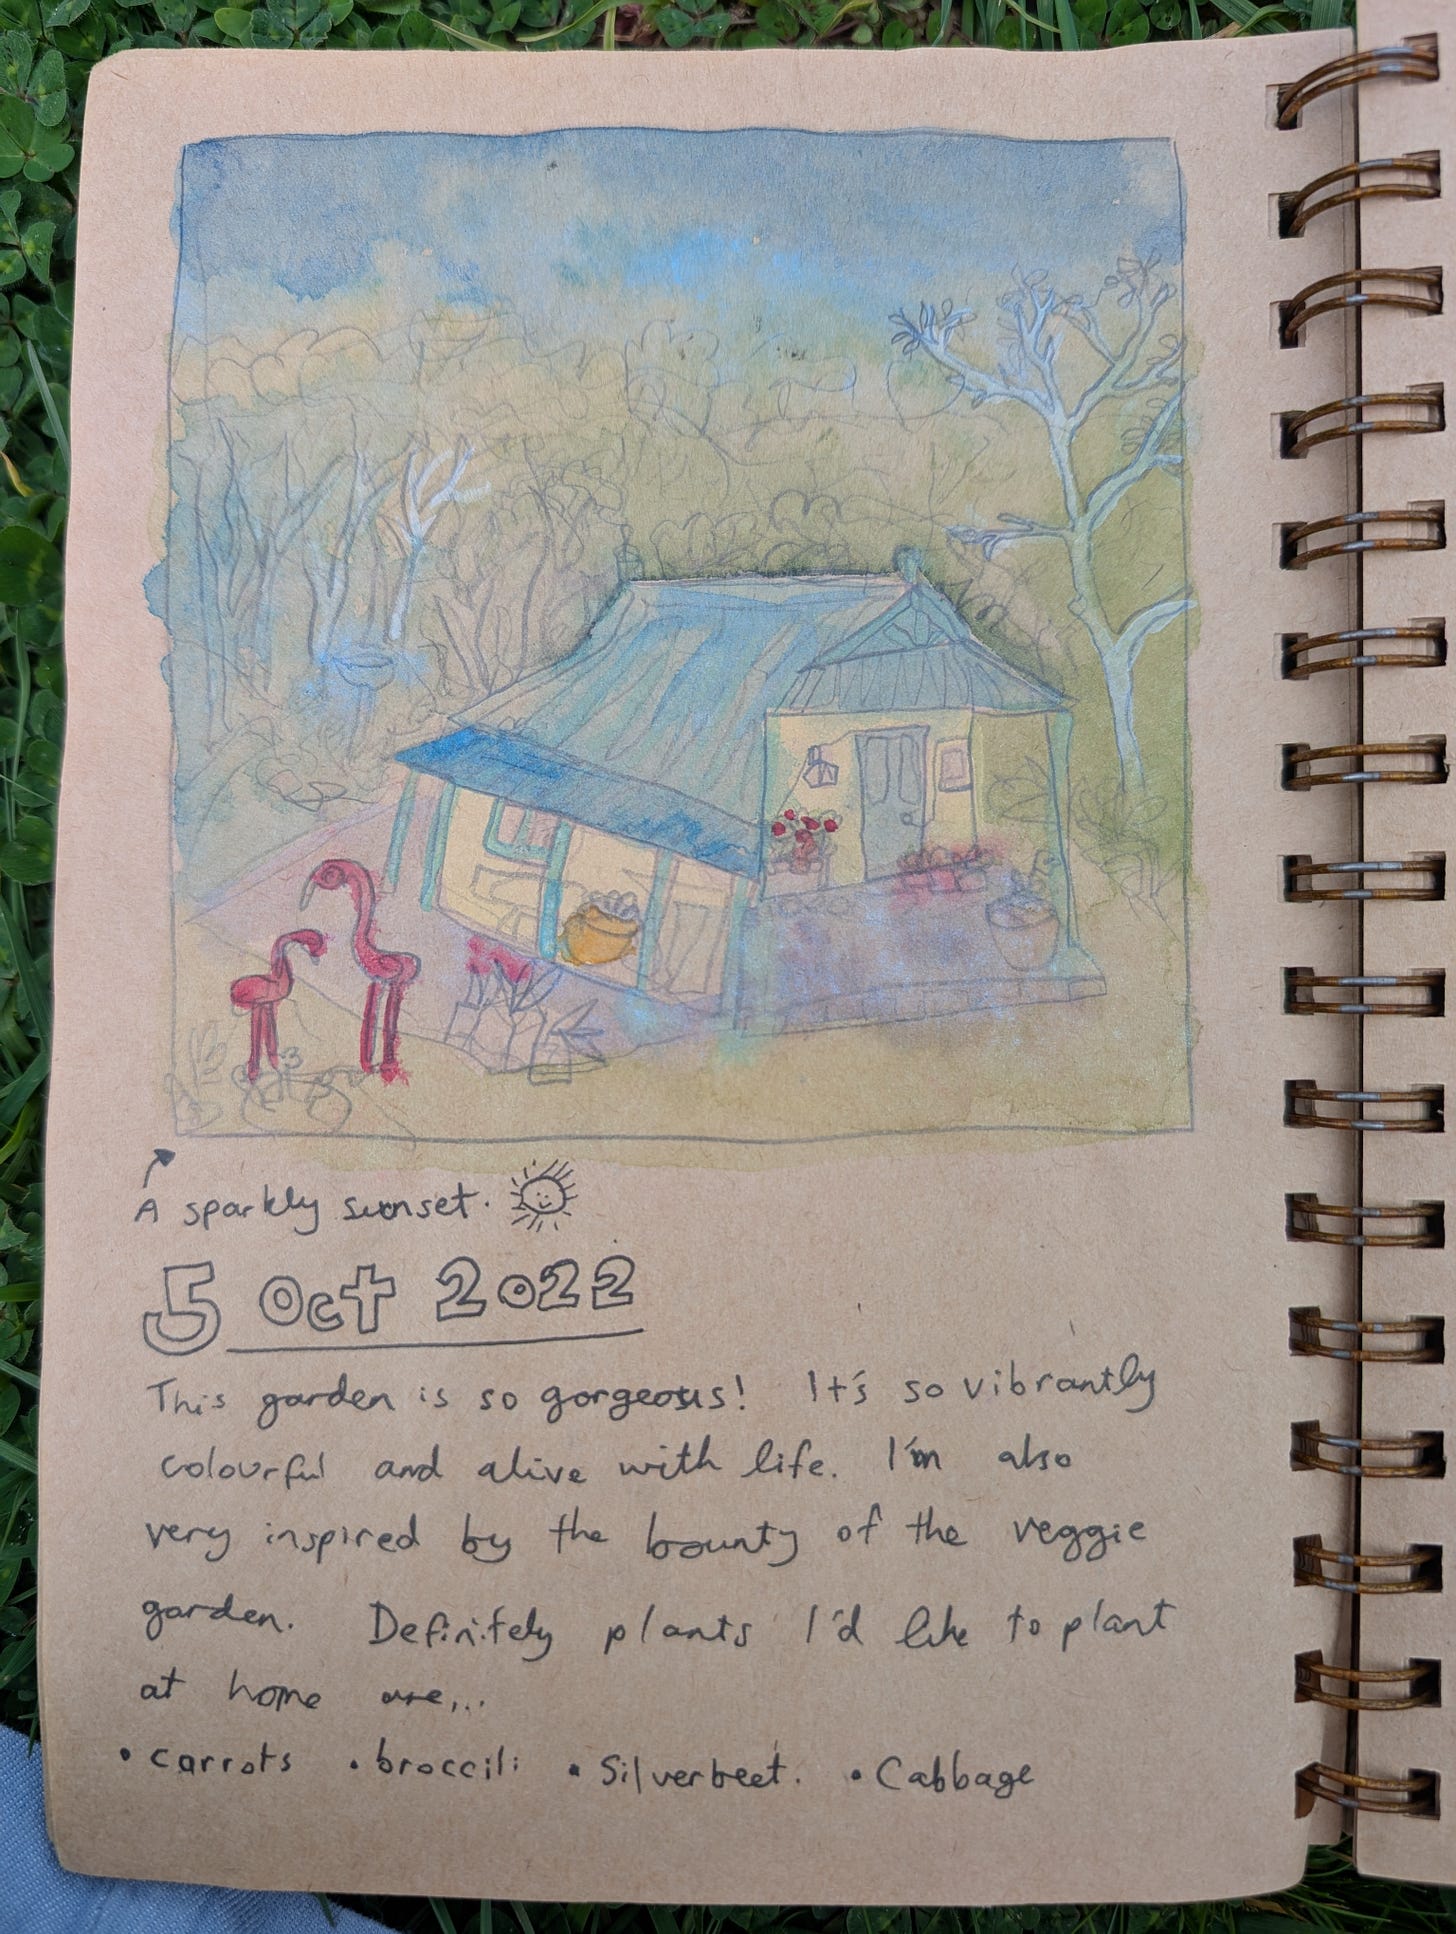 A sparkly sunset.
5 Oct 2022
This garden is so gorgeous! It's so vibrantly
colourful and alive with life. I'm also
very inspired by the bounty of the veggie
garden. Definitely plants I'd like to plant
at home are...
• carrots • broccili • Silverbeet. • Cabbage